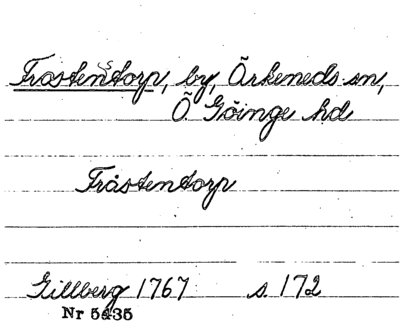 Trostentorp, by, Örkeneds sn,
Ö. Göinge hd
Tråstentorp
Gillberg 1767 s. 172
Nr 5435